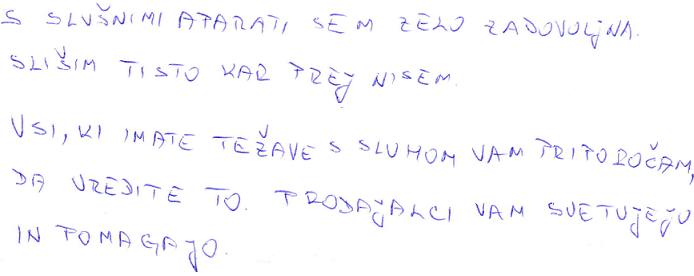 S SLUŠNIMI APARATI SEM ZELO ZADOVOLjNA.
SLIŠIM TISTO KAR PREj NISEM.
VSI, KI IMATE TEŽAVE S SLUHOM VAM PRIPOROČAM,
DA UREDITE TO. PRODAjALCI VAM SVETUjEjO
IN POMAGAjO.